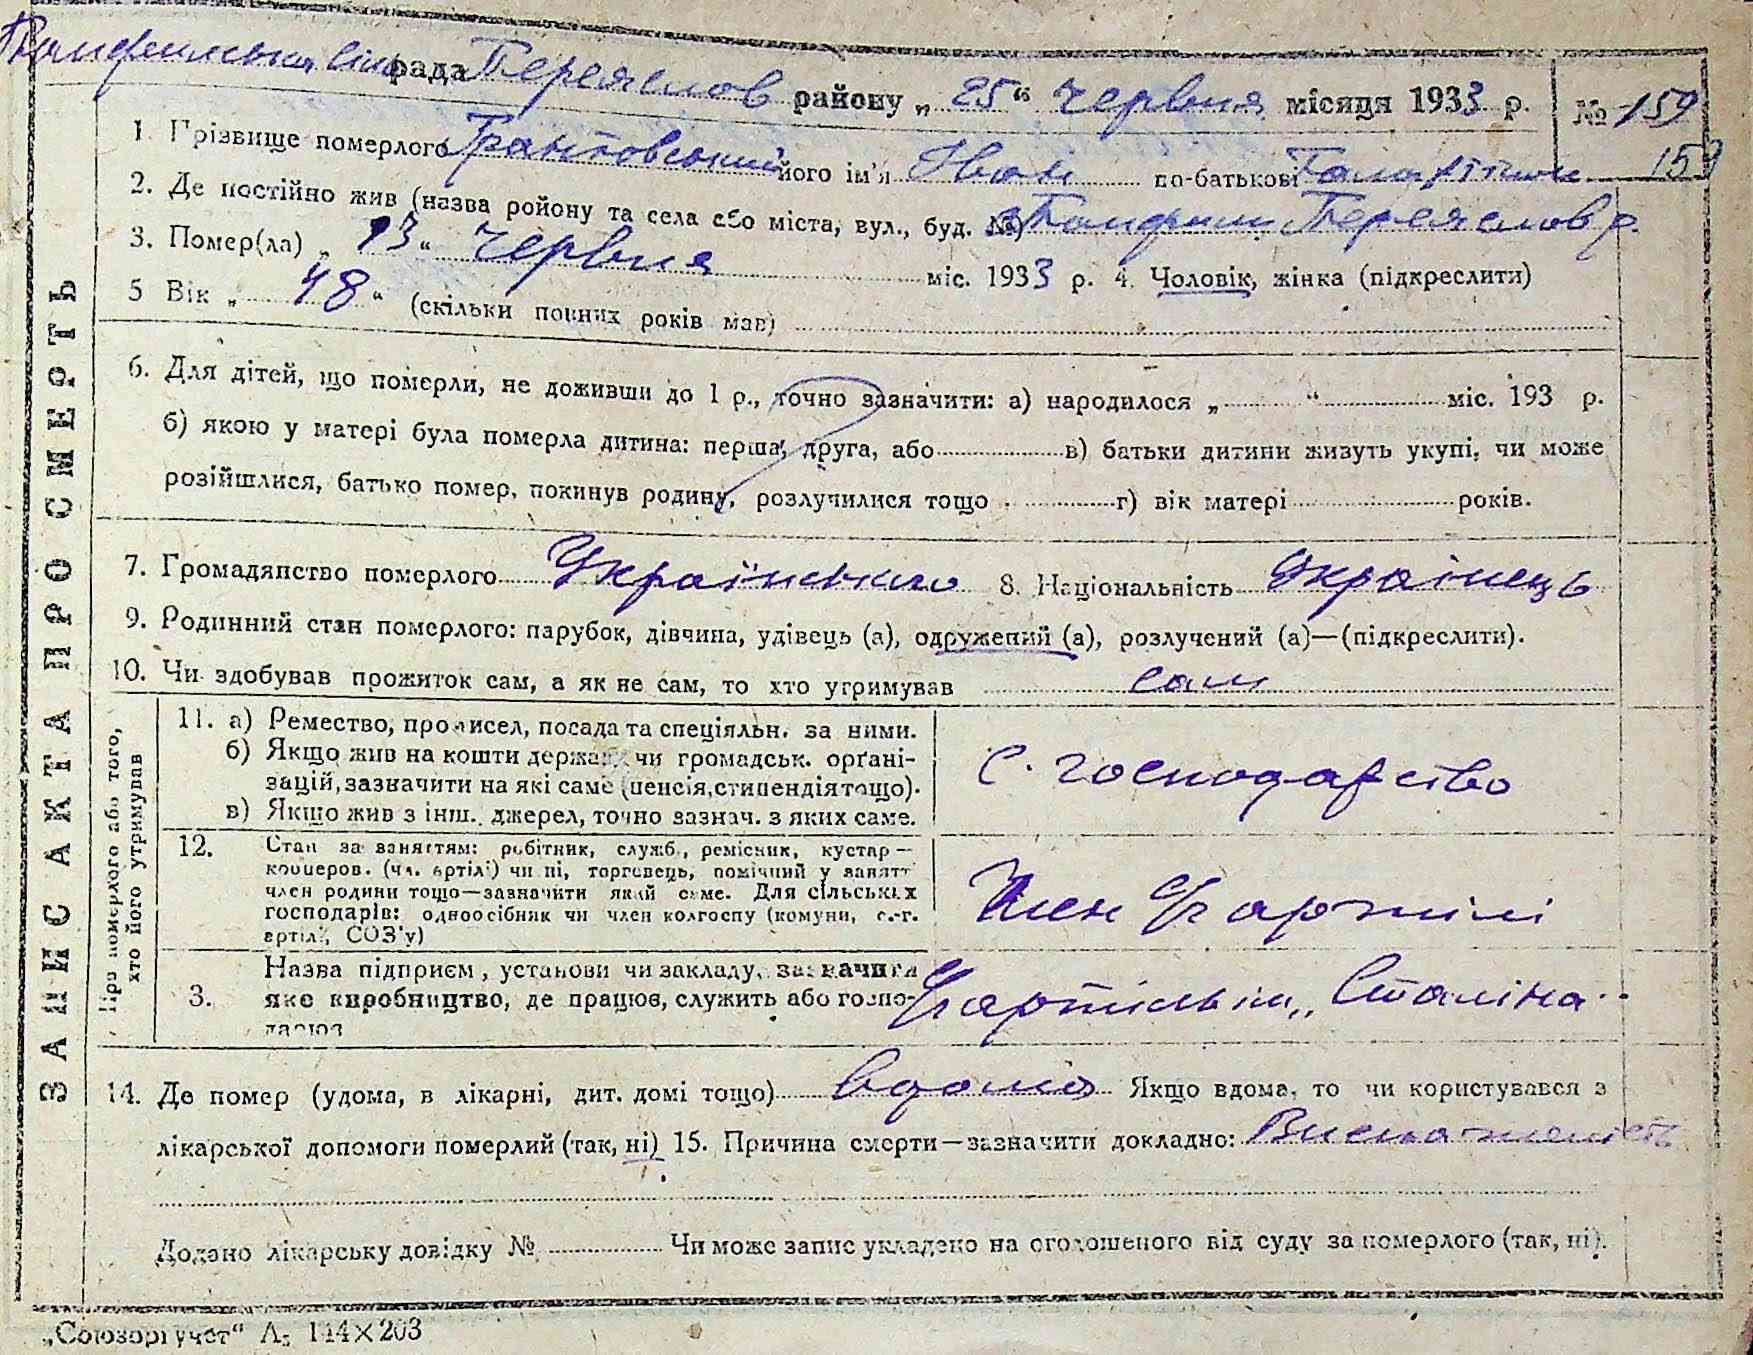 Помфильська сільрада Переяслов району „25“ червня місяця 1933 р. № 159
1. Прізвище померлого Грантовський його ім'я Иван по-батькові 159
2. Де постійно жив (назва ройону та села або міста, вул., буд. №) Помфили Переяслов р.
3. Помер(ла) „13“ червня міс. 1933 р. 4. Чоловік, жінка (підкреслити)
5 Вік „48“ (скільки повних років мав)
6. Для дітей, що померли, не доживши до 1 р., точно зазначити: а) народилося „ “ міс. 193 р.
б) якою у матері була померла дитина: перша, друга, або в) батьки дитини живуть укупі, чи може
розійшлися, батько помер, покинув родину, розлучилися тощо г) вік матері років.
7. Громадянство померлого Українського 8. Національність Українець
9. Родинний стан померлого: парубок, дівчина, удівець (а), одружений (а), розлучений (а)—(підкреслити).
10. Чи здобував прожиток сам, а як не сам, то хто утримував сам
ЗАПИС АКТА ПРО СМЕРТЬ
Про померлого або того,
хто його утримував
11. а) Ремество, промисел, посада та спеціяльн. за ними.
б) Якщо жив на кошти держав. чи громадськ. орґані-
зацій, зазначити на які саме (пенсія, стипендія тощо).
в) Якщо жив з інш. джерел, точно зазнач. з яких саме.
С. господарство
12. Стан за заняттям: робітник, служб., ремісник, кустар—
кооперов. (чл. артілі) чи ні, торговець, помічний у занятт
член родини тощо—зазначити який саме. Для сільських
господарів: одноосібник чи член колгоспу (комуни, с.-г.
артілі, СОЗ'у)
Член С/г артілі
3. Назва підприєм, установи чи закладу, зазначити
яке виробництво, де працюв, служить або госпо-
дарюв
С/г артіль ім „Сталіна“
14. Де помер (удома, в лікарні, дит. домі тощо) вдома Якщо вдома, то чи користувався з
лікарської допомоги померлий (так, ні) 15. Причина смерти—зазначити докладно: Виснаженість
Додано лікарську довідку № Чи може запис укладено на оголошеного від суду за померлого (так, ні).
„Союзоргучет“ А5 144×203